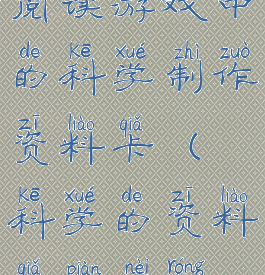 阅读游戏中
de kē xué zhì zuò
的科学制作
zī liào qiǎ
资料卡（
kē xué de zī liào
科学的资料
qiǎ piàn nèi róng